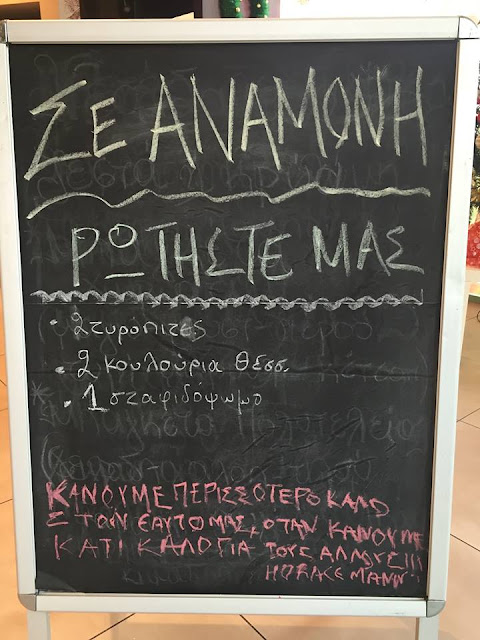 ΣΕ ΑΝΑΜΟΝΗ
ΡΩΤΗΣΤΕ ΜΑΣ
• 2 τυρόπιτες
• 2 κουλούρια Θεσσ.
• 1 σταφιδόψωμο
ΚΑΝΟΥΜΕ ΠΕΡΙΣΣΟΤΕΡΟ ΚΑΛΟ
ΣΤΟΝ ΕΑΥΤΟ ΜΑΣ, ΟΤΑΝ ΚΑΝΟΥΜΕ
ΚΑΤΙ ΚΑΛΟ ΓΙΑ ΤΟΥΣ ΑΛΛΟΥΣ!!!
HORACE MANN